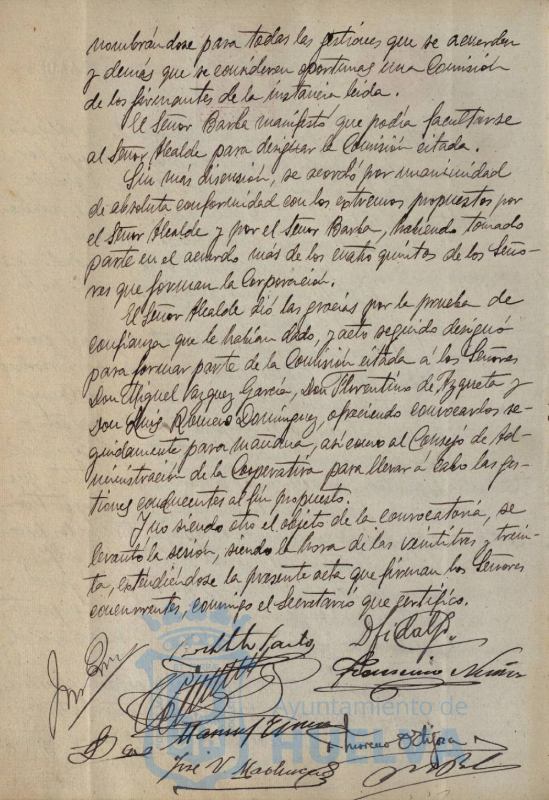 nombrándose para todas las gestiones que se acuerden
y demás que se consideren oportunas una Comisión
de los firmantes de la instancia leida.
El Señor Barba manifestó que podia facultarse
al Señor Alcalde para designar la Comisión citada.
Sin más discusión, se acordó por unanimidad
de absoluta conformidad con los extremos propuestos por
el Señor Alcalde y por el Señor Barba, habiendo tomado
parte en el acuerdo más de los cuatro quintos de los Seño-
res que forman la Corporación.
El Señor Alcalde dió las gracias por la prueba de
confianza que le habian dado, y acto seguido designó
para formar parte de la Comisión citada á los Señores
Don Miguel Vazquez García, Don Florentino de Azqueta y
Don Luis Romero Dominguez, ofreciendo convocarlos se-
guidamente para mañana, asi como al Consejo de Ad-
ministración de la Cooperativa para llevar á cabo las ges-
tiones conducentes al fin propuesto.
Y no siendo otro el objeto de la convocatoria, se
levantó la sesión, siendo la hora de las veintitres y trein-
ta, extendiéndose la presente acta que firman los Señores
concurrentes, conmigo el Secretario que certifico.
José V. Machuca
Moreno Ortega
Ayuntamiento de
HUELVA